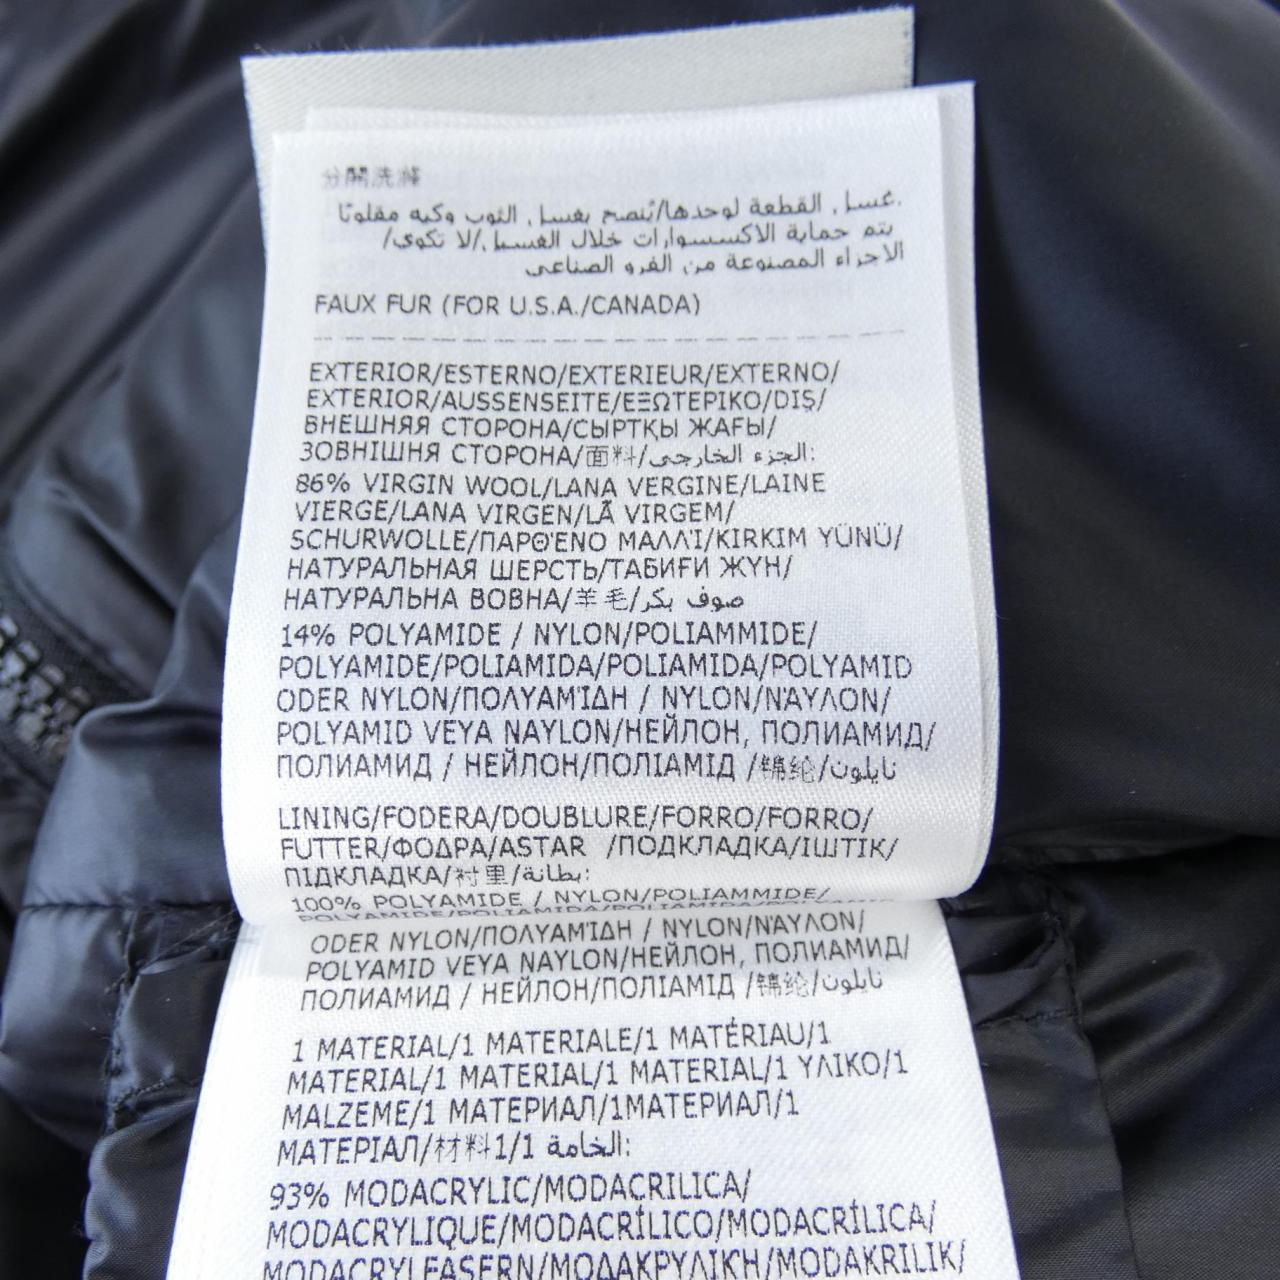 分開洗滌
غسل القطعة لوحدها/يُنصح بغسل الثوب وكيه مقلوبًا
يتم حماية الاكسسوارات خلال الغسيل/لا تكوى/
الاجزاء المصنوعة من الفرو الصناعى
FAUX FUR (FOR U.S.A./CANADA)
EXTERIOR/ESTERNO/EXTERIEUR/EXTERNO/
EXTERIOR/AUSSENSEITE/ΕΞΩΤΕΡΙΚΟ/DIŞ/
ВНЕШНЯЯ СТОРОНА/СЫРТҚЫ ЖАҒЫ/
ЗОВНІШНЯ СТОРОНА/面料/الجزء الخارجى:
86% VIRGIN WOOL/LANA VERGINE/LAINE
VIERGE/LANA VIRGEN/LÃ VIRGEM/
SCHURWOLLE/ΠΑΡΘΈΝΟ ΜΑΛΛΊ/KIRKIM YÜNÜ/
НАТУРАЛЬНАЯ ШЕРСТЬ/ТАБИҒИ ЖҮН/
НАТУРАЛЬНА ВОВНА/羊毛/صوف بكر
14% POLYAMIDE / NYLON/POLIAMMIDE/
POLYAMIDE/POLIAMIDA/POLIAMIDA/POLYAMID
ODER NYLON/ΠΟΛΥΑΜΊΔΗ / NYLON/ΝΆΥΛΟΝ/
POLYAMID VEYA NAYLON/НЕЙЛОН, ПОЛИАМИД/
ПОЛИАМИД / НЕЙЛОН/ПОЛІАМІД /锦纶/نايلون
LINING/FODERA/DOUBLURE/FORRO/FORRO/
FUTTER/ΦΟΔΡΑ/ASTAR /ПОДКЛАДКА/ІШТІК/
ПІДКЛАДКА/衬里/بطانة:
100% POLYAMIDE / NYLON/POLIAMMIDE/
POLYAMIDE/POLIAMIDA/POLIAMIDA/POLYAMID
ODER NYLON/ΠΟΛΥΑΜΊΔΗ / NYLON/ΝΆΥΛΟΝ/
POLYAMID VEYA NAYLON/НЕЙЛОН, ПОЛИАМИД/
ПОЛИАМИД / НЕЙЛОН/ПОЛІАМІД /锦纶/نايلون
1 MATERIAL/1 MATERIALE/1 MATÉRIAU/1
MATERIAL/1 MATERIAL/1 MATERIAL/1 ΥΛΙΚΟ/1
MALZEME/1 МАТЕРИАЛ/1МАТЕРИАЛ/1
МАТЕРІАЛ/材料1/1 الخامة:
93% MODACRYLIC/MODACRILICA/
MODACRYLIQUE/MODACRÍLICO/MODACRÍLICA/
MODACRYLFASERN/ΜΟΔΑΚΡΥΛΙΚΗ/MODAKRILIK/